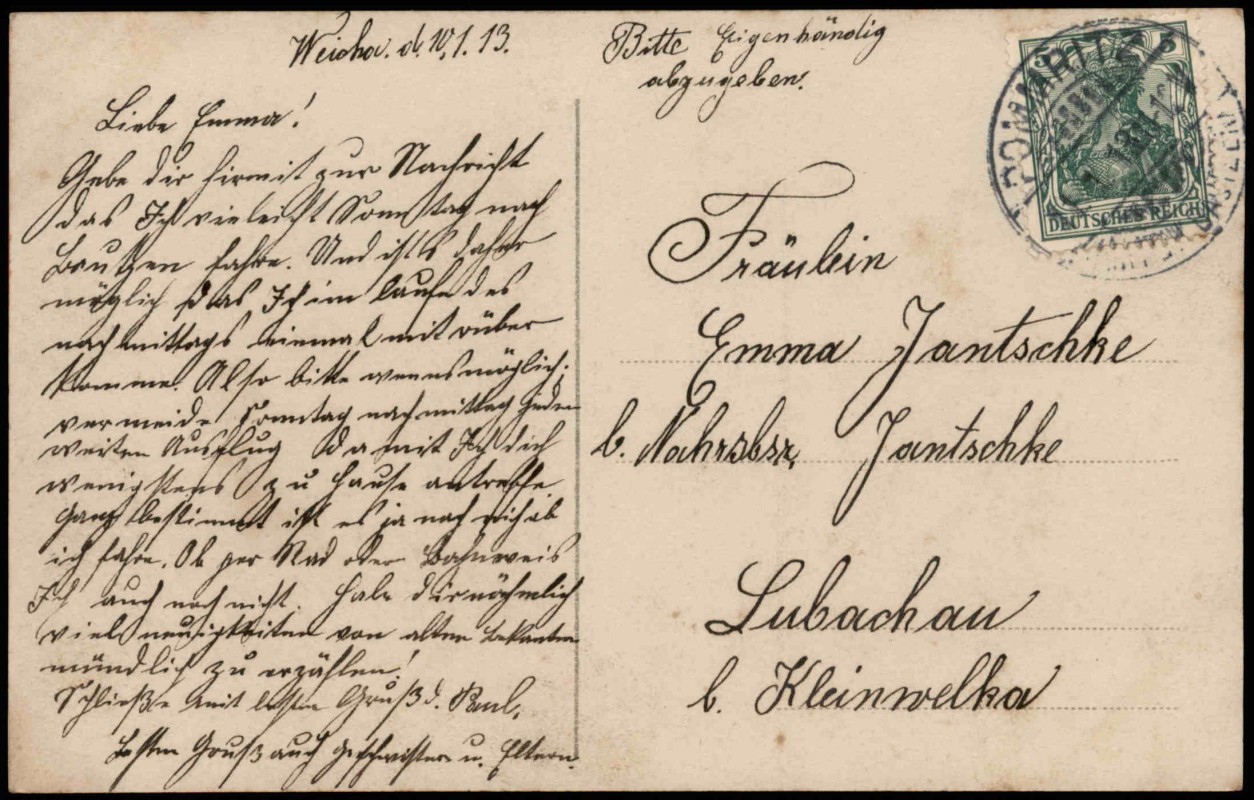 Weicha. d. 10.1.13.
Liebe Emma!
Gebe dir hirmit zur Nachricht
das Ich vieleicht Sonntag nach
Bautzen fahre. Und ist's daher
möglich das Ich im laufe des
nachmittags einmal mit rüber
komme. Also bitte wenn es möglich;
vermeide Sonntag nachmittag jeden
weiten Ausflug Damit Ich dich
wenigstens zu Hause antreffe.
Ganz bestimmt ist es ja noch nich ob
ich fahre. Ob per Rad oder Bahn weis
Ich auch noch nicht. Habe dir nähmlich
viel neuigkeiten von alten bekanten
mündlich zu erzählen!
Schließe mit besten Gruß d. Paul.
Besten Gruß auch geschwister u. Eltern.
Bitte Eigenhändig
abzugeben.
Fräulein
Emma Jantschke
b. Nahrsbsz. Jantschke
Lubachau
b. Kleinwelka
POMMRITZ
5 5
DEUTSCHES REICH